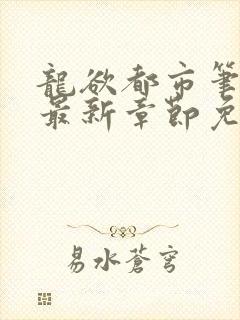 龍欲都市筆
最新章節免
易水蒼穹